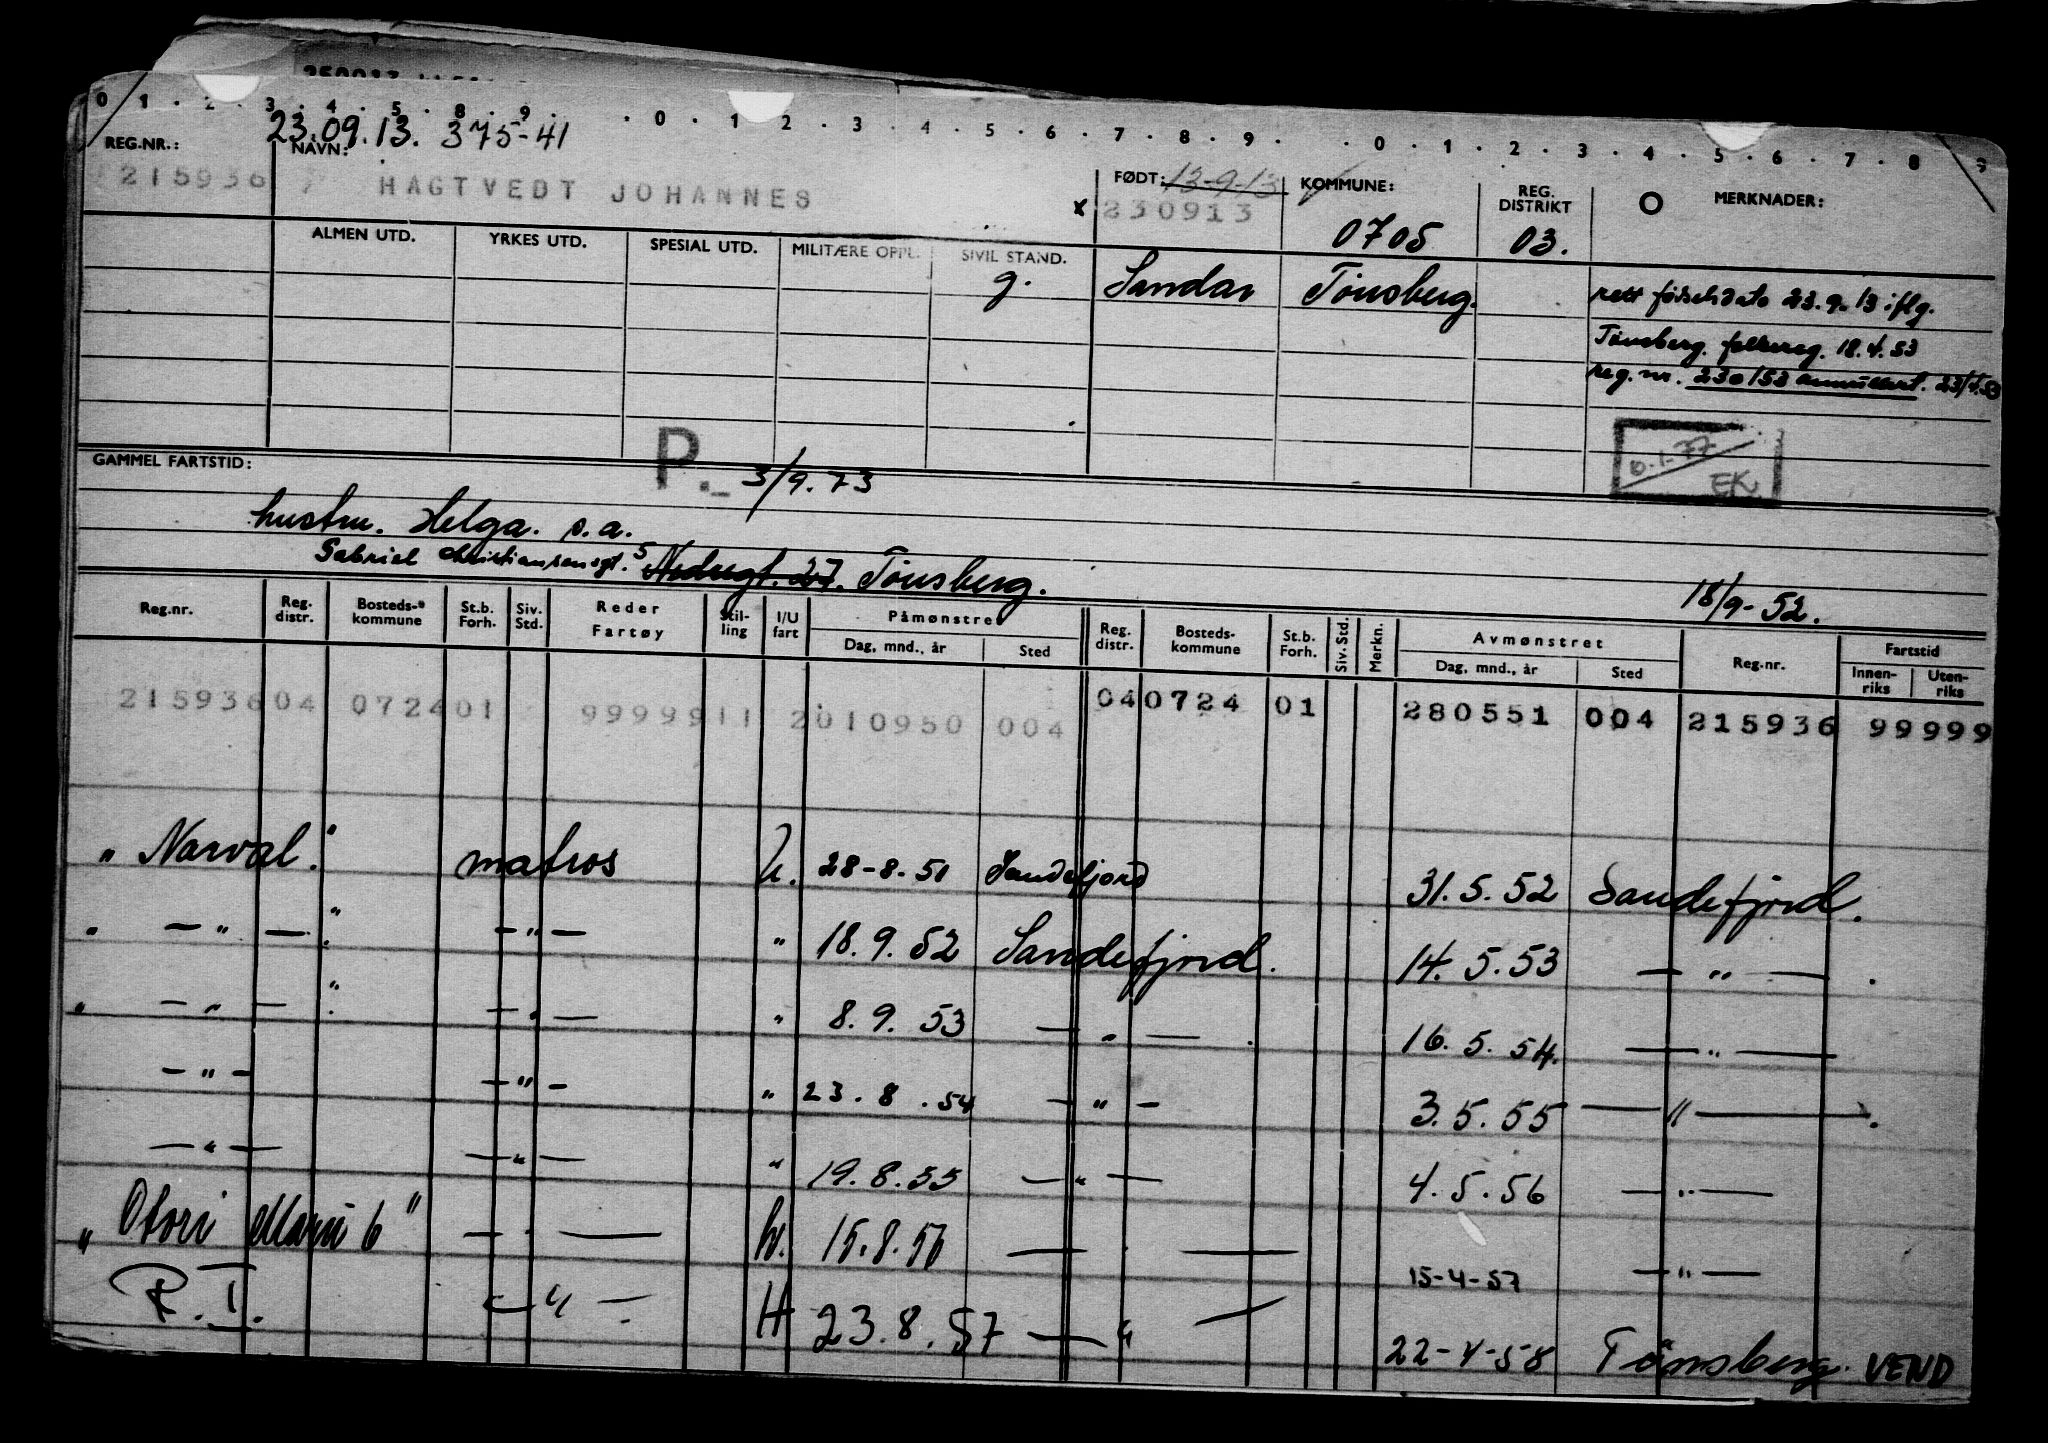 0 1 . 2 . 3 . 4 . 5 . 8 . 9 . . 0 . 1 . 2 . 3 . 4 . 5 . 6 . 7 . 8 . 9 . . 0 . 1 . 2 . 3 . 4 . 5 . 6 . 7 . 8 9
23.09.13. 375-41
REG.NR.: NAVN: FØDT: 13-9-13 KOMMUNE: REG. DISTRIKT O MERKNADER:
215936 HAGTVEDT JOHANNES x 230913 0705 03.
ALMEN UTD. YRKES UTD. SPESIAL UTD. MILITÆRE OPPL. SIVIL STAND.
g. Sandar Tønsberg.
rett fødselsdato 23.9.13 iflg.
Tønsberg. folkereg. 18.4.53
reg.nr. 230153 annullert. 23/4.53
10.1.77
EK
GAMMEL FARTSTID: P. 3/9.73
hustru. Helga. s.a.
Gabriel Christiansensgt. 5 Nedregt. 27. Tønsberg.
18/9-52.
Reg.nr. Reg. distr. Bosteds-kommune St.b. Forh. Siv. Std. Reder Fartøy Stil-ling I/U fart Påmønstret Dag, mnd., år Sted Reg. distr. Bosteds-kommune St.b. Forh. Siv. Std. Merkn. Avmønstret Dag, mnd., år Sted Reg.nr. Fartstid Innen-riks Uten-riks
215936 04 0724 01 9999911 2010950 004 04 0724 01 280551 004 215936 99999
„Narval." matros U. 28-8.51 Sandefjord 31.5.52 Sandefjord.
„ — " — " — " — " 18.9.52 Sandefjord. 14.5.53 — " — .
„ — " — " — " — " 8.9.53 — " — . 16.5.54. — " —
— " — — " — " 23.8.54 — " — 3.5.55 — " — .
— " — — " — " 19.8.55 — " — 4.5.56 — " —
„Otori Maru 6" — " — hv. 15.8.56 — " — 15-4-57 — " —
R.I. — " — H 23.8.57 — " — 22-4-58 Tønsberg. VEND